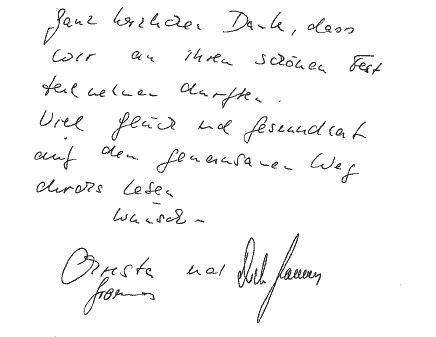 Ganz herzlichen Dank, dass
wir an ihrem schönen Fest
teilnehmen durften.
Viel Glück und Gesundheit
auf dem gemeinsamen Weg
durchs Leben
wünschen
Christa und